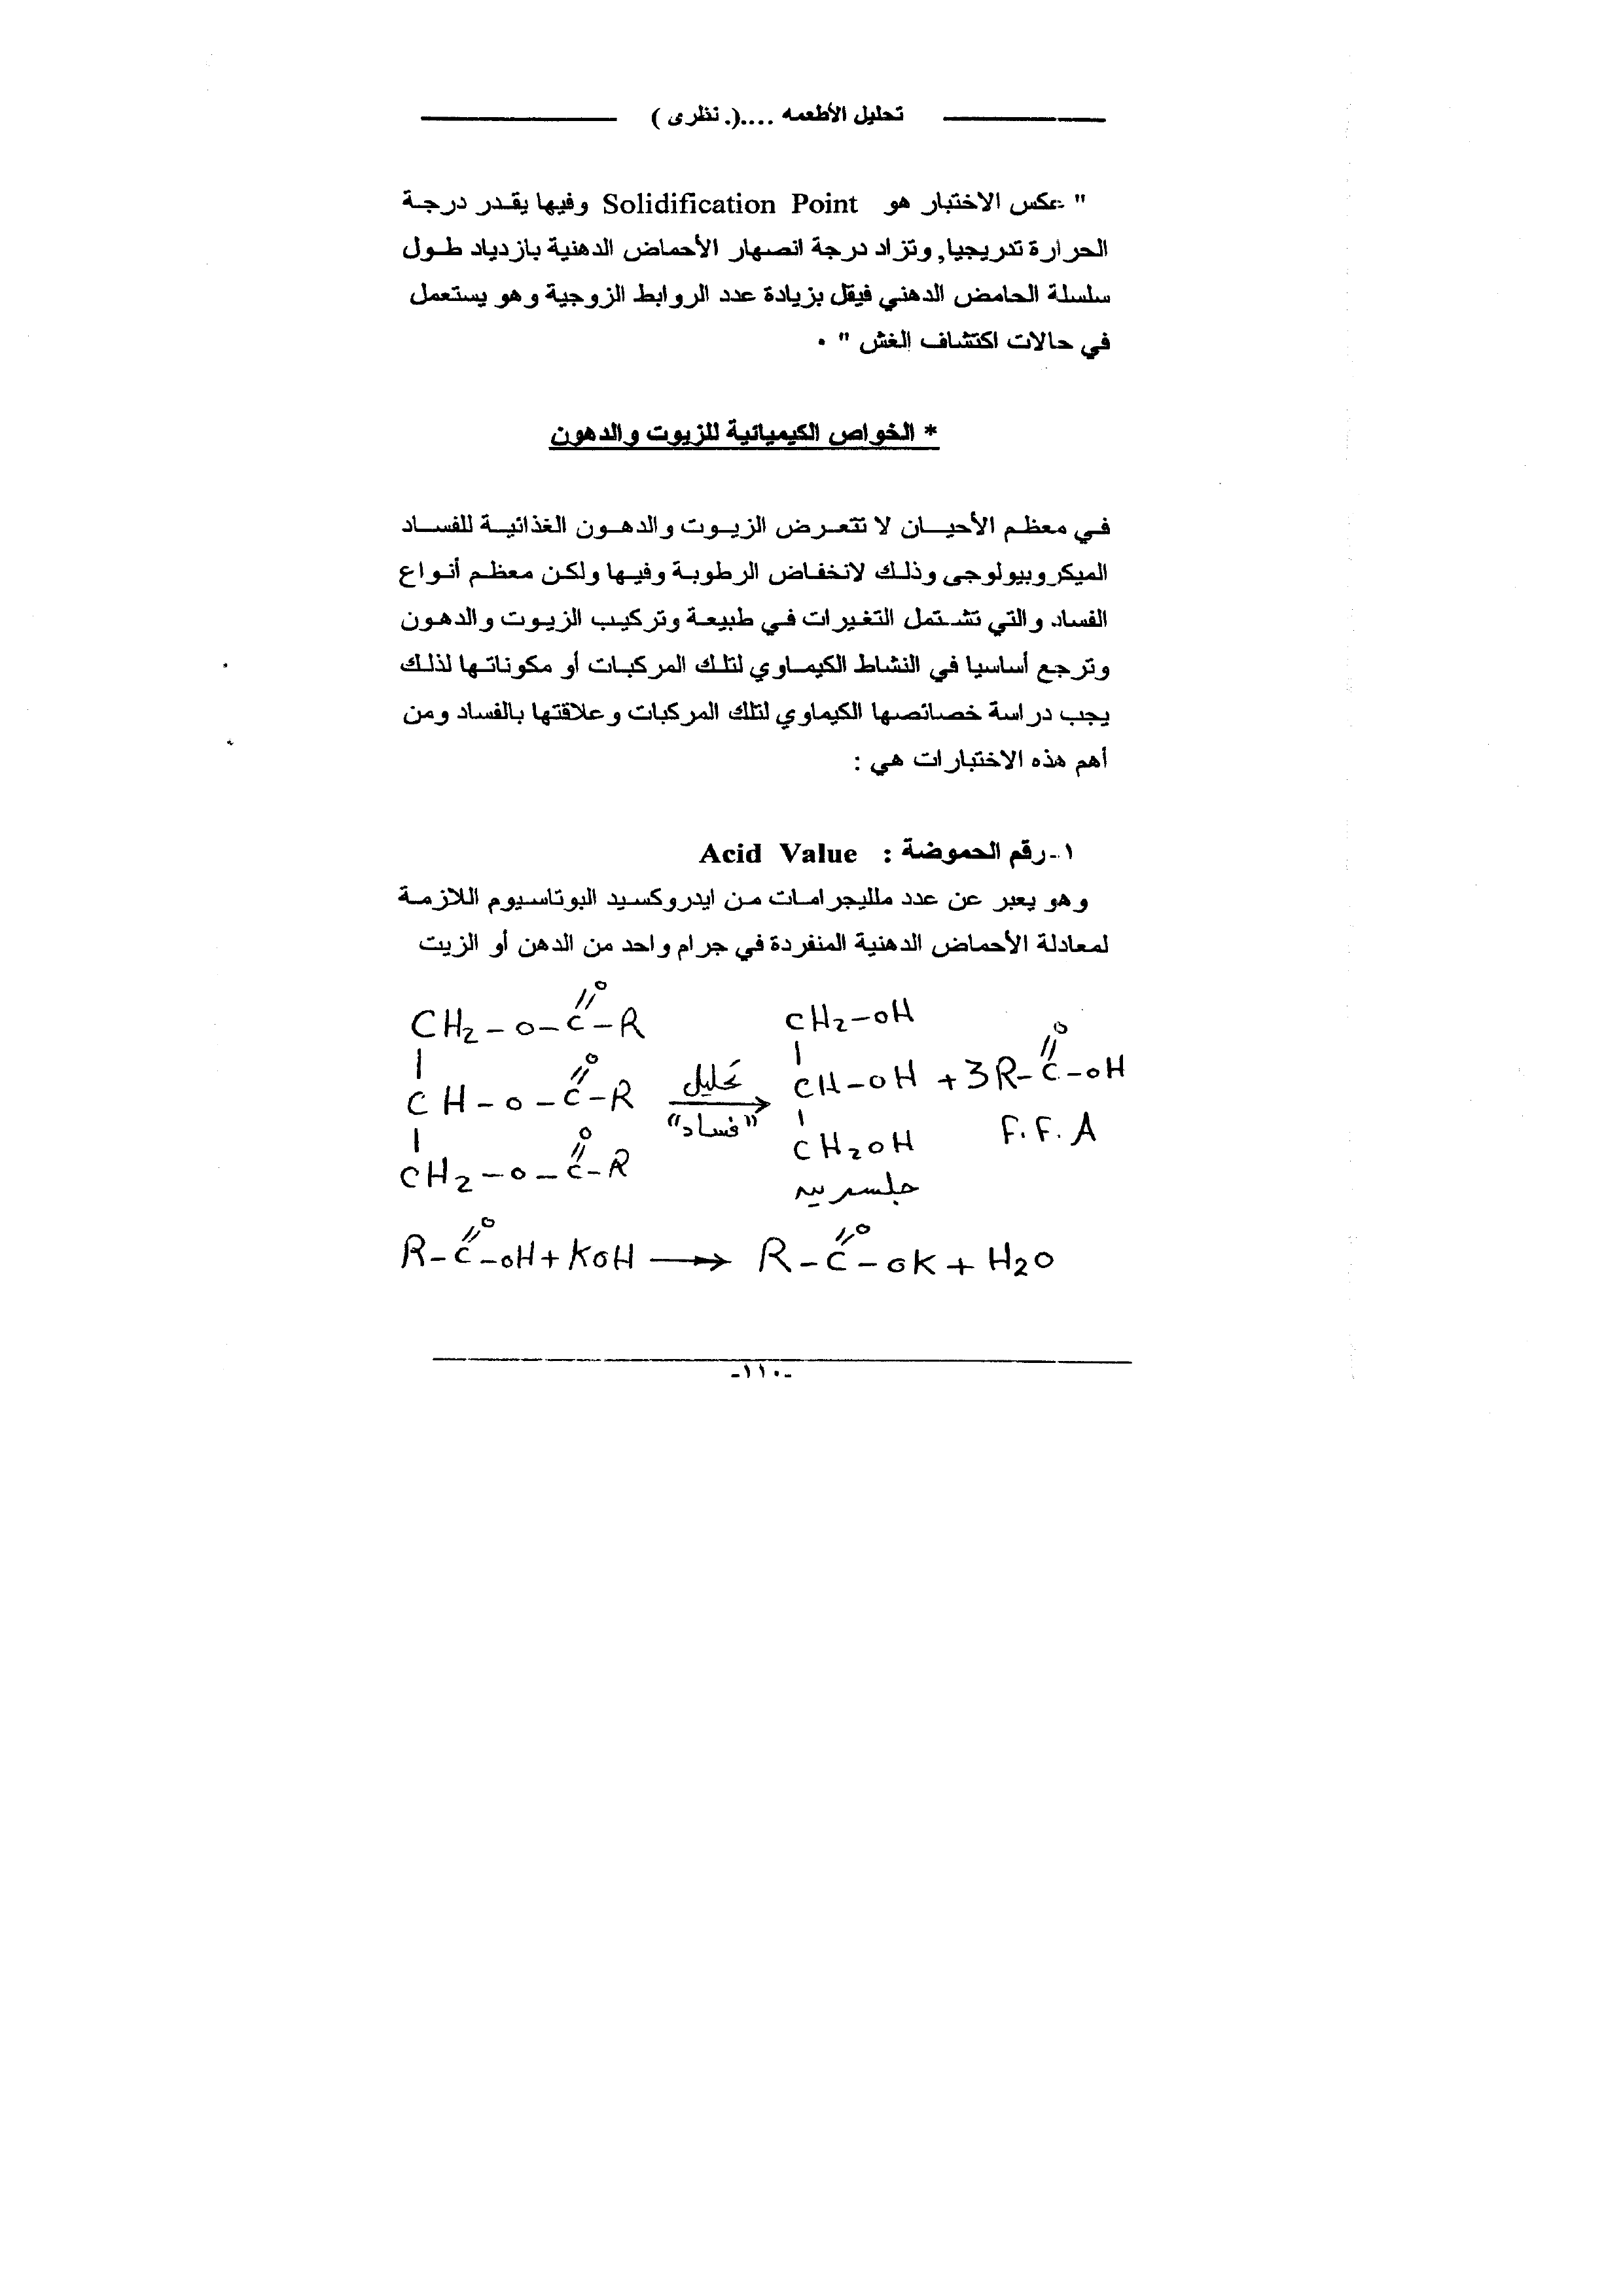 تحليل الأطعمه ....(. نظرى )
" عكس الاختبار هو Solidification Point وفيها يقدر درجة
الحرارة تدريجيا, وتزاد درجة انصهار الأحماض الدهنية بازدياد طول
سلسلة الحامض الدهني فيقل بزيادة عدد الروابط الزوجية وهو يستعمل
في حالات اكتشاف الغش " .
* الخواص الكيميائية للزيوت والدهون
في معظم الأحيان لا تتعرض الزيوت والدهون الغذائية للفساد
الميكروبيولوجى وذلك لانخفاض الرطوبة وفيها ولكن معظم أنواع
الفساد والتي تشتمل التغيرات في طبيعة وتركيب الزيوت والدهون
وترجع أساسيا في النشاط الكيماوي لتلك المركبات أو مكوناتها لذلك
يجب دراسة خصائصها الكيماوي لتلك المركبات وعلاقتها بالفساد ومن
أهم هذه الاختبارات هي :
١-رقم الحموضة : Acid Value
وهو يعبر عن عدد ملليجرامات من ايدروكسيد البوتاسيوم اللازمة
لمعادلة الأحماض الدهنية المنفردة في جرام واحد من الدهن أو الزيت
CH2-O-C(=O)-R CH2-OH
CH-O-C(=O)-R تحليل CH-OH + 3R-C(=O)-OH
"فساد"
CH2-O-C(=O)-R CH2OH F.F.A
جلسرين
R-C(=O)-OH + KOH → R-C(=O)-OK + H2O
-١١٠-